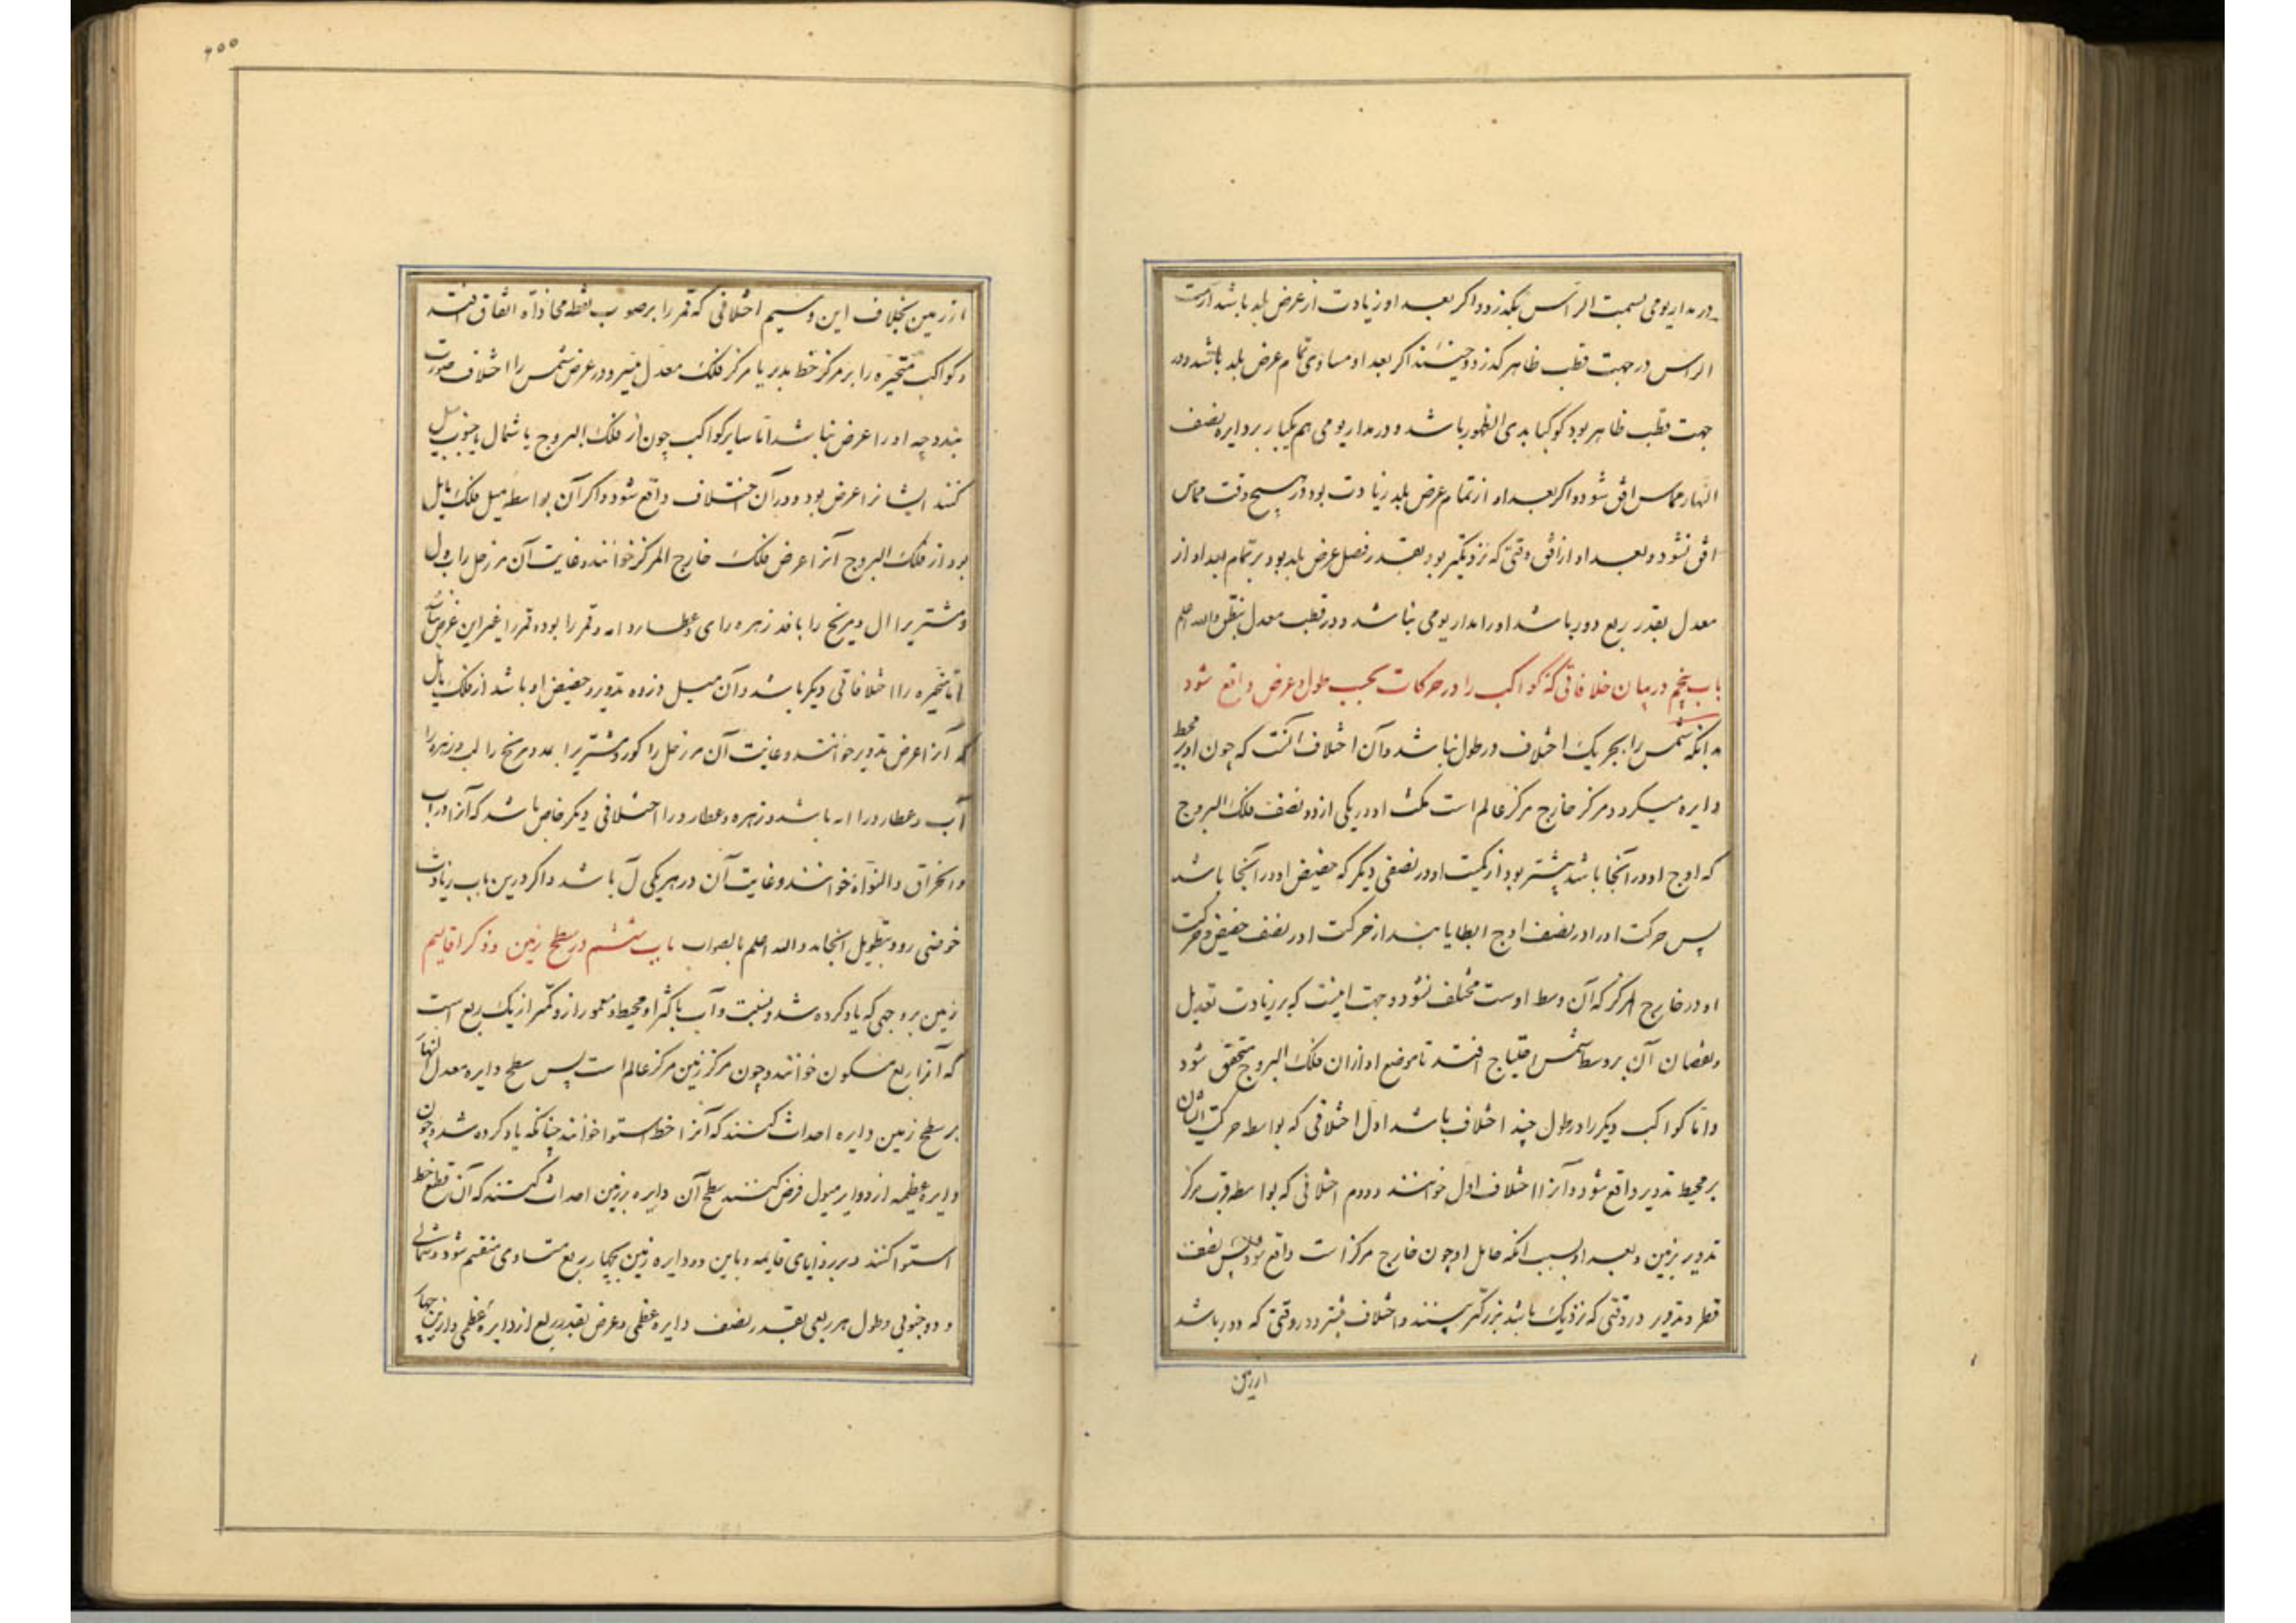 در مدار یومی بسمت الراس بگذرد و اکر بعد او زیادت از عرض بلد باشد از سمت
الراس در جهت قطب ظاهر گذرد و حینئذ اکر بعد او مساوی تمام عرض بلد باشد و در
جهت قطب ظاهر بود کوکب ابدی الظهور باشد و در مدار یومی هم یکبار بر دایره نصف
النهار مماس افق شود و اکر بعد او از تمام عرض بلد زیادت بود در هیچ وقت مماس
افق نشود و بعد او از افق وقتی که نزدیکتر بود بقدر فصل عرض بلد بود بر تمام بعد او از
معدل بقدر ربع دور باشد او را مدار یومی نباشد و در قطب معدل والله اعلم
باب پنجم در بیان خلافاتی که کواکب را در حرکات بحسب طول و عرض واقع شود
بدانکه شمس را بجز یک اختلاف در طول نباشد و آن اختلاف آنست که چون او بر محیط
دایره میکردد مرکز خارج مرکز عالم است مکث او در یکی از دو نصف فلک البروج
که اوج او در آنجا باشد بیشتر بود از مکث او در نصفی دیکر که حضیض او در آنجا باشد
پس حرکت او را در نصف اوج ابطا یابند از حرکت او در نصف حضیض و حرکت
او در خارج المرکز که آن وسط اوست مختلف نشود و جهت اینست که بر زیادت تعدیل
و نقصان آن بر وسط شمس احتیاج افتد تا موضع او از ان فلک البروج متحقق شود
و اما کواکب دیکر را در طول چند اختلاف باشد اول اختلافی که بواسطه حرکت ایشان
بر محیط تدویر واقع شود و آنرا اختلاف اول خوانند و دوم اختلافی که بواسطه قرب مرکز
تدویر بزمین و بعد او بسبب انکه حامل او چون خارج مرکز است واقع شود پس نصف
قطر تدویر در وقتی که نزدیک باشد بزرکتر بینند و اختلاف بیشتر و در وقتی که دور باشد
از زمین
۲۰۰
از زمین بخلاف این و سیم اختلافی که قمر را بر صوب نقطه محاذاة اتفاق افتد
و کواکب متحیره را بر مرکز خط مدیر یا مرکز فلک معدل مسیر و در عرض شمس را اختلاف صورت
نبندد چه او را عرض نباشد اما سایر کواکب چون از فلک البروج با شمال یا جنوب میل
کنند ایشانرا عرض بود و در آن اختلاف واقع شود و اکر آن بواسطه میل فلک مایل
بود از فلک البروج آنرا عرض فلک خارج المرکز خوانند و غایت آن مر زحل را ب ل
و مشتری را ا ل و مریخ را با قد زهره را ی و عطارد را مه و قمر را بود و قمر را غیر این عرض نباشد
اما متحیره را اختلافاتی دیکر باشد و آن میل ذروه تدویر و حضیض او باشد از فلک مایل
که آنرا عرض تدویر خوانند و غایت آن مر زحل را و مشتری را و مریخ را و زهره را
و عطارد را باشد و زهره و عطارد را اختلافی دیکر خاص باشد که آنرا وراب
و انحراق و التواء خوانند و غایت آن در هر یکی ل باشد و اکر درین باب زیادت
خوضی رود بتطویل انجامد والله اعلم بالصواب باب ششم در سطح زمین و ذکر اقالیم
زمین بر وجهی که یاد کرده شد و نسبت و آب باکثر او محیط و معمور از و کمتر از یک ربع است
که آنرا ربع مسکون خوانند و چون مرکز زمین مرکز عالم است پس سطح دایره معدل النهار
بر سطح زمین دایره احداث کنند که آنرا خط استوا خوانند چنانکه یاد کرده شد و چون
دایره عظیمه از دوایر میول فرض کنند سطح آن دایره بر زمین احداث کنند که آن تقاطع خط
استوا کنند بر زوایای قایمه و باین دو دایره زمین بچهار ربع متساوی منقسم شود دو شمالی
و دو جنوبی و طول هر ربعی بقدر نصف دایره عظمی و عرض بقدر ربع از دایره عظمی و ازین چهار